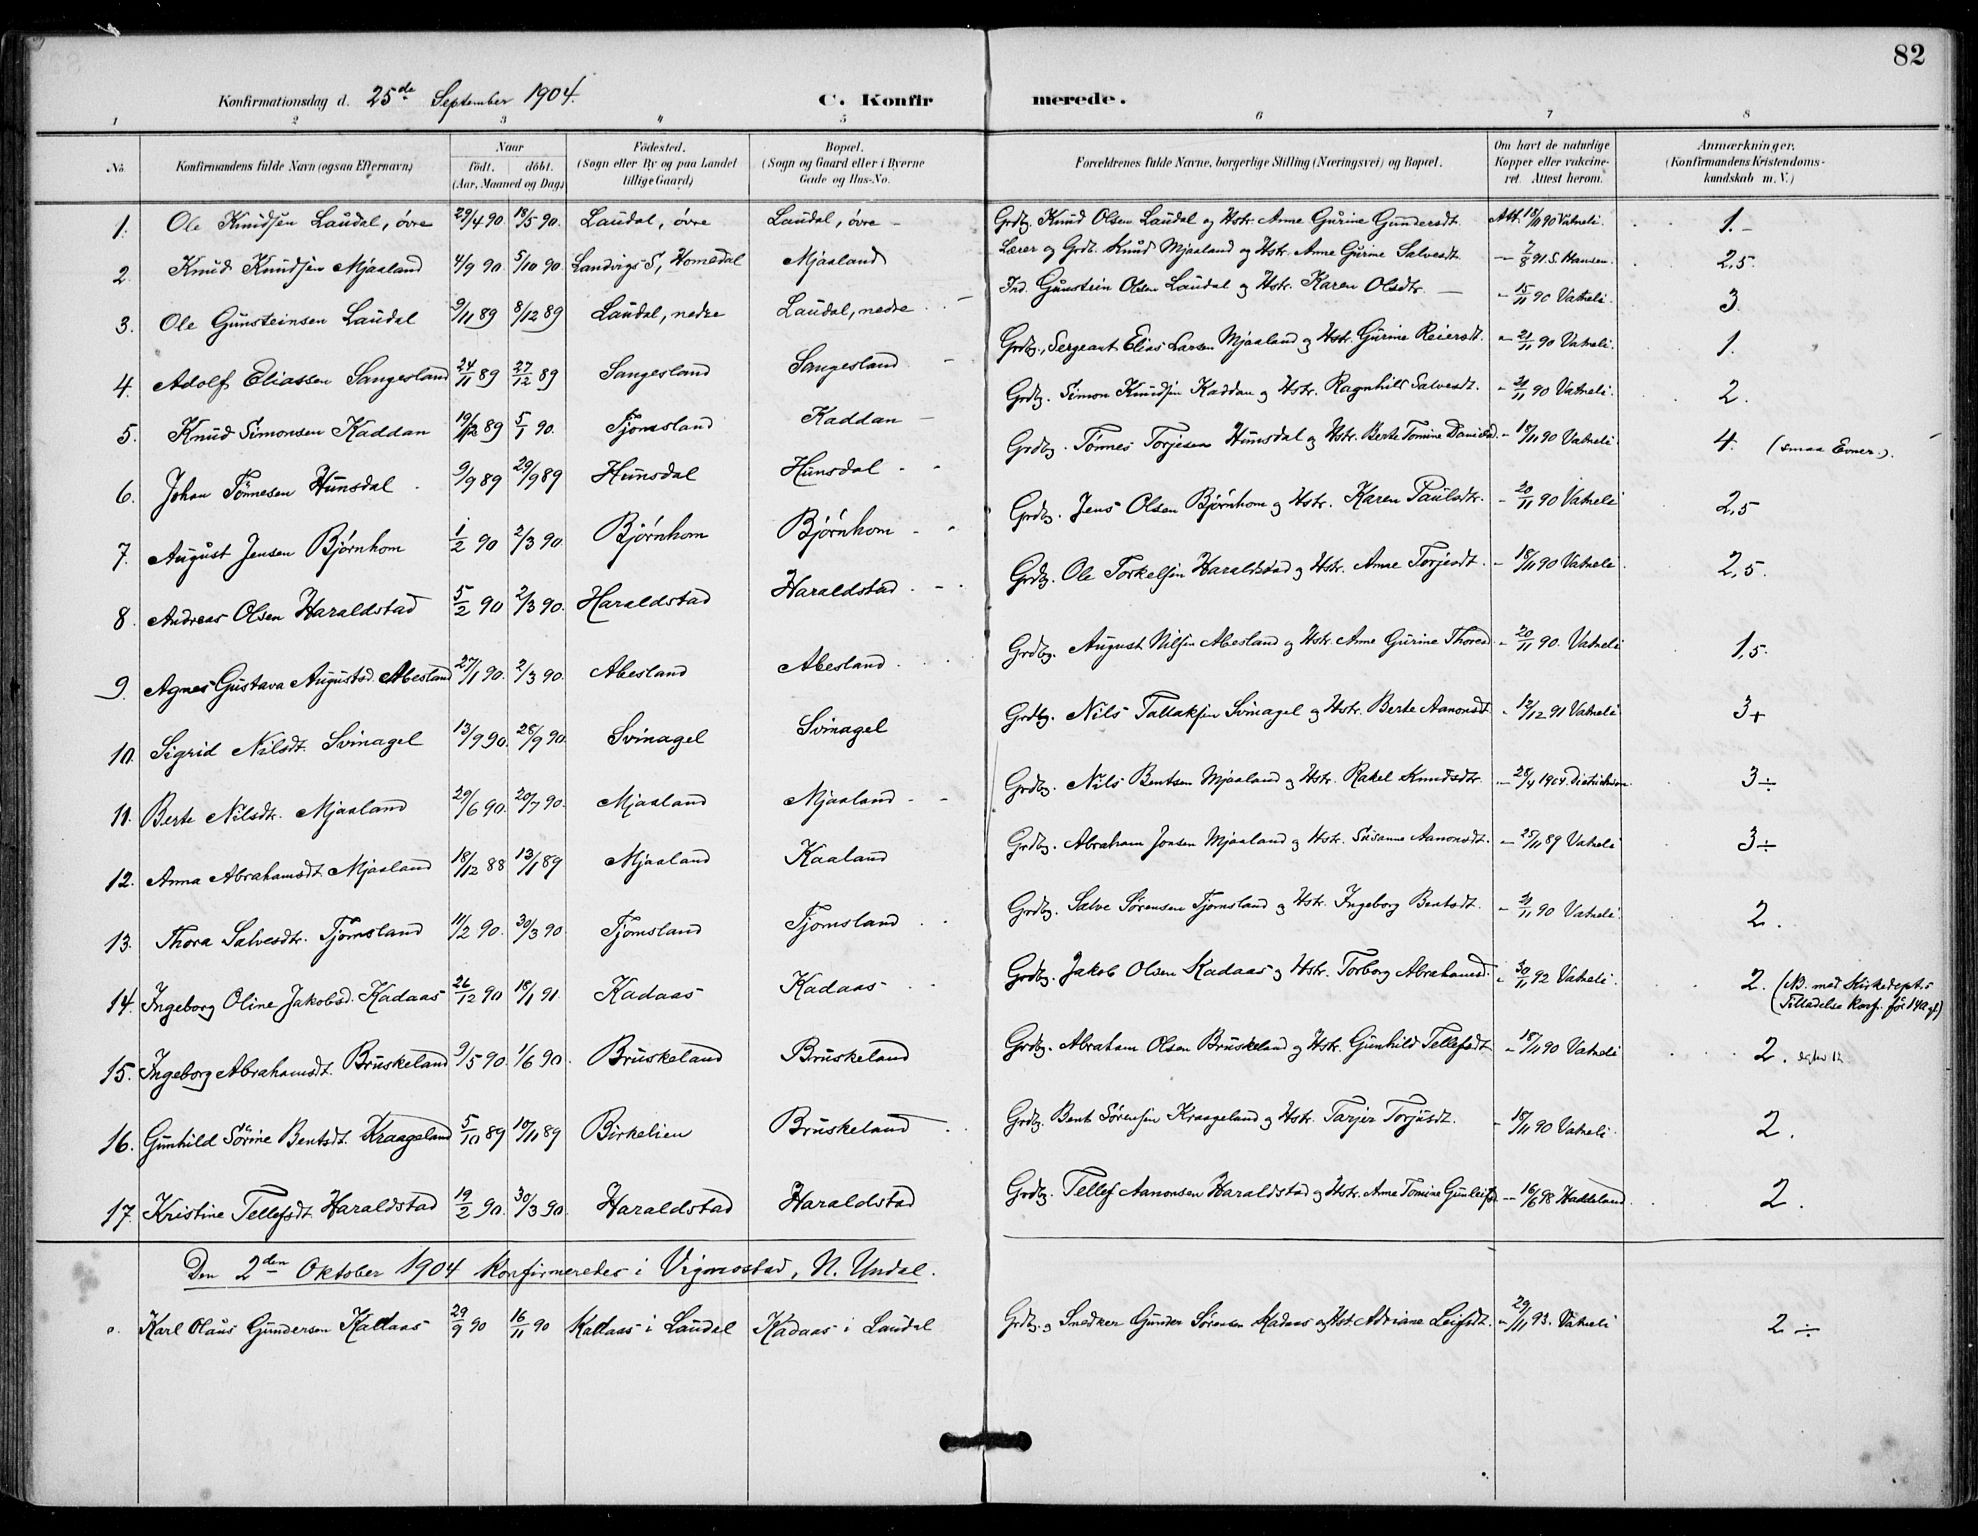 82
Konfirmationsdag d. 25de September 1904. C. Konfirmerede.
1 2 3 4 5 6 7 8
No. Konfirmandens fulde Navn (ogsaa Efternavn) Naar født. døbt. (Aar, Maaned og Dag) Fødested. (Sogn eller By og paa Landet tillige Gaard) Bopæl. (Sogn og Gaard eller i Byerne Gade og Hus-No. Forældrenes fulde Navne, borgerlige Stilling (Næringsvei) og Bopæl. Om havt de naturlige Kopper eller vakcineret. Attest herom. Anmærkninger. (Konfirmandens Kristendomskundskab m. V.)
1. Ole Knudsen Laudal, øvre 29/4 90 18/5 90. Laudal, øvre Laudal, øvre - Grdbg. Knud Olsen Laudal og Hstr. Anne Gurine Gundersdt. Att. 18/11 90 Vatneli. 1.-
2. Knud Knudsen Mjaaland 4/9 90. 5/10 90. Landvigs S, Homedal Mjaaland Lærer og Grdb. Knud Mjaaland og Hstr. Anne Gurine Salvesdt. - 7/8 91. S. Hansen. 2,5.
3. Ole Gunsteinsen Laudal 9/11 89 8/12 89 Laudal, nedre Laudal, nedre - Ind. Gunstein Olsen Laudal og Hstr. Karen Olsdtr. - - 15/11 90 Vatneli. 3.
4. Adolf Eliassen Sangesland 24/11 89 27/12 89 Sangesland Sangesland - Grdbg., Sergeant Elias Larsen Mjaaland og Hstr. Gurine Reiersdt. - 21/11 90 Vatneli. 1.
5. Knud Simonsen Kaddan 19/12 89 5/1 90. Tjomsland Kaddan - Grdbg. Simon Knudsen Kaddan og Hstr. Ragnhild Salvesdt. - 21/11 90 Vatneli. 2.
6. Johan Tønnesen Hunsdal 9/9 89 29/9 89 Hunsdal Hunsdal - - Grdbg. Tønnes Torjesen Hunsdal og Hstr. Berte Tomine Danielsd. - 18/11 90 Vatneli. 4. (smaa Evner.)
7. August Jensen Bjørnhom 1/2 90 2/3 90 Bjørnhom Bjørnhom - - Grdbg. Jens Olsen Bjørnhom og Hstr. Karen Paulsdtr. - 20/11 90 Vatneli 2,5
8. Andreas Olsen Haraldstad 5/2 90 2/3 90. Haraldstad Haraldstad - - Grdbg. Ole Torkelsen Haraldstad og Hstr. Anne Torjesdt. - 18/11 90 Vatneli. 2,5.
9. Agnes Gustava Augustsd. Abesland 27/1 90. 2/3 90. Abesland Abesland Grdbg. August Nilsen Abesland og Hstr. Anne Gurine Thoresd. - 20/11 90. Vatneli 1,5.
10. Sigrid Nilsdt. Svinagel 13/9 90. 28/9 90. Svinagel Svinagel Grdbg. Nils Tallaksen Svinagel og Hstr. Berte Aanonsdt. - 12/12 91 Vatneli 3+
11. Berte Nilsdtr. Mjaaland 29/6 90. 20/7 90. Mjaaland Mjaaland - - Grdbg. Nils Bentsen Mjaaland og Hstr. Rakel Knudsdtr. - 28/4 1904 Dietrichson 3÷
12. Anna Abrahamsdt. Mjaaland 18/12 88 13/1 89 Mjaaland Kaaland Grdbg. Abraham Jonsen Mjaaland og Hstr. Susanne Aanonsdt. - 25/11 89 Vatneli 3÷
13. Thora Salvesdtr. Tjomsland 11/2 90. 30/3 90 Tjomsland Tjomsland Grdbg. Salve Sørensen Tjomsland og Hstr. Ingeborg Bentsdt. - 21/11 90 Vatneli 2.
14. Ingeborg Oline Jakobsd. Kadaas 26/12 90 18/1 91. Kadaas Kadaas Grdbg. Jakob Olsen Kadaas og Hstr. Torborg Abrahamsd. - 30/11 92 Vatneli. 2. (NB. med Kirkedept.s Tilladelse konf. før 14 A gl)
15. Ingeborg Abrahamsdt. Bruskeland 9/5 90. 1/6 90. Bruskeland Bruskeland Grdbg. Abraham Olsen Bruskeland og Hstr. Gunhild Tellefsdt. - 18/11 90 Vatneli 2.
16. Gunhild Sørine Bentsdt. Kraageland 5/10 89 10/11 89 Birkelien Bruskeland Grdbg. Bent Sørensen Kraageland og Hstr. Tarjer Torjusdt. - 18/11 90 Vatneli. 2.
17. Kristine Tellefsdt. Haraldstad 19/2 90. 30/3 90. Haraldstad Haraldstad Grdbg. Tellef Aanonsen Haraldstad og Hstr. Anne Tomine Gunleifsd. - 16/6 98 Haddeland. 2.
Den 2den Oktober 1904 konfirmeredes i Vigmostad, N. Undal.
Karl Olaus Gundersen Kaddaas 29/9 90 16/11 90 Kaddaas i Laudal Kadaas i Laudal Grdbg. og Snedker Gunder Sørensen Kadaas og Hstr. Adriane Leifsdt. - 29/11 93. Vatneli 2÷